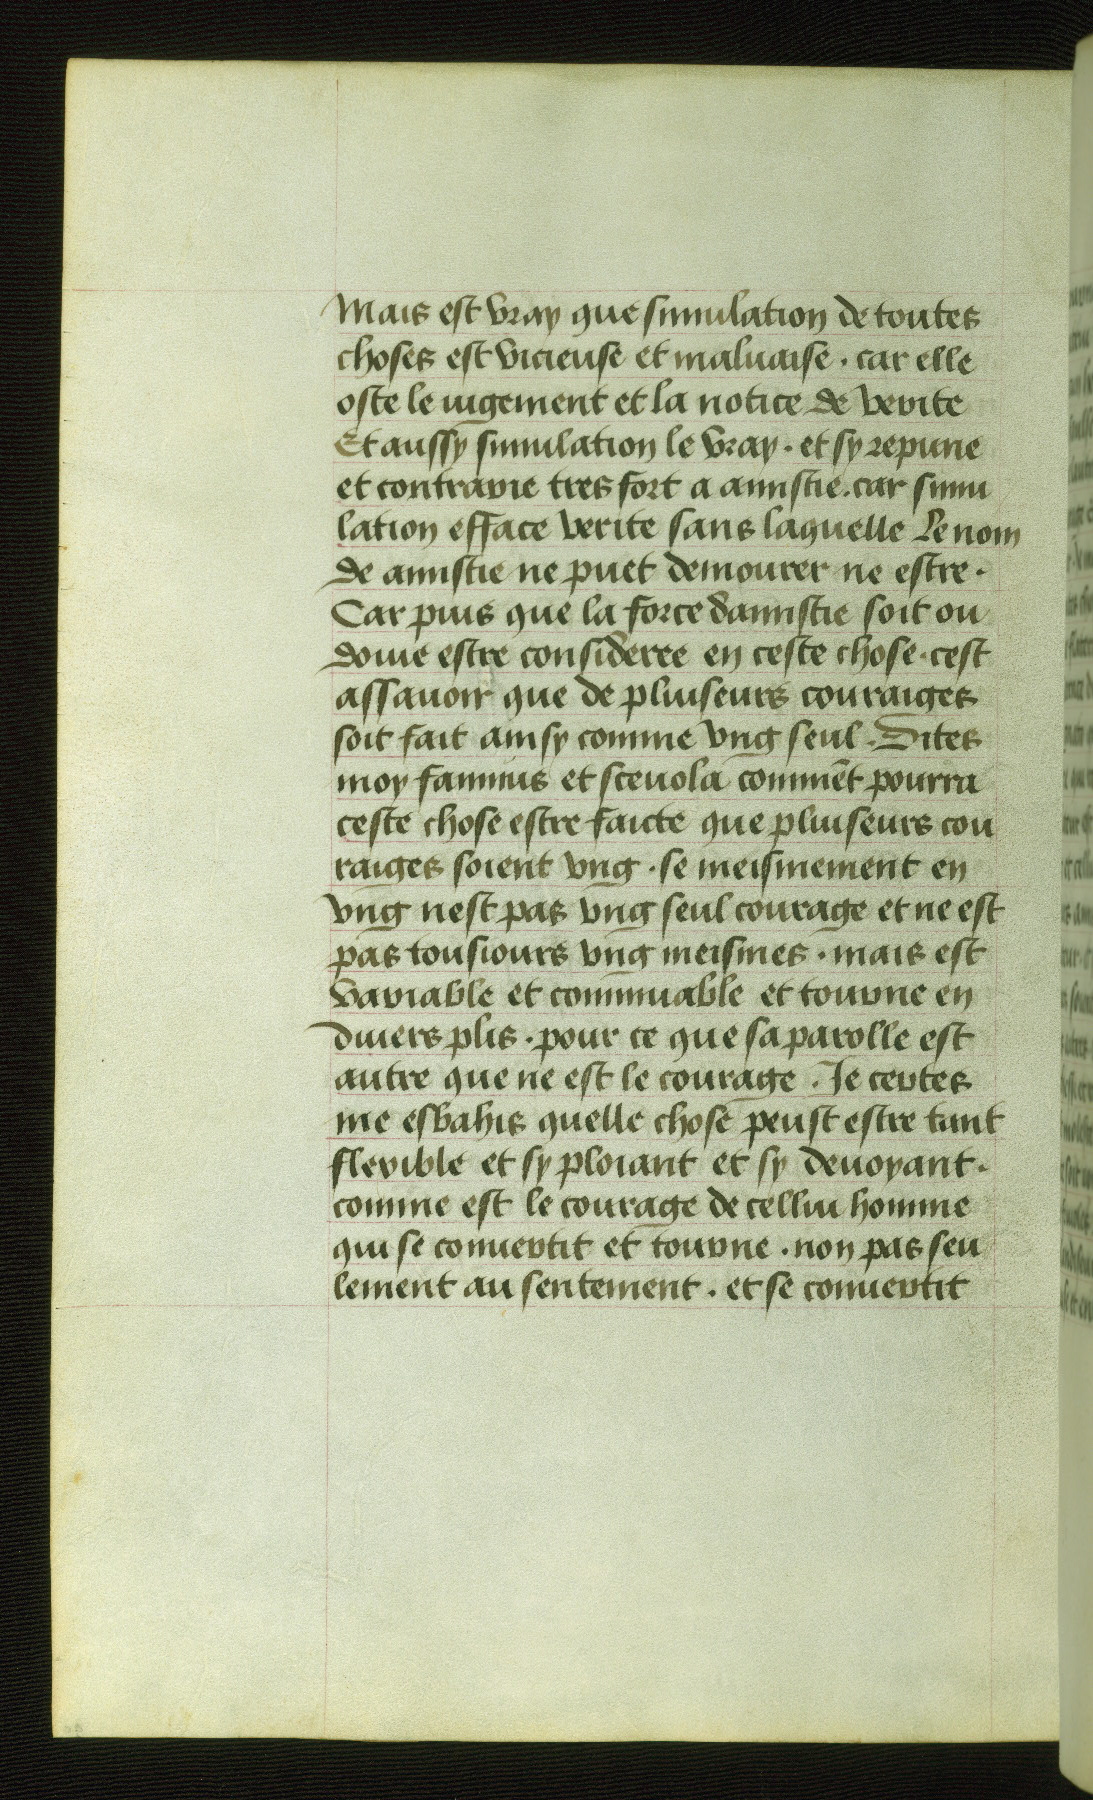 Mais est vray que simulation de toutes
choses est vicieuse et malvaise . car elle
oste le iugement et la notice de verite
Et aussy simulation le vray . et sy repune
et contrarie tres fort a amistie . car simu
lation efface verite sans laquelle Le nom
de amistie ne puet demourer ne estre .
Car puis que la force damistie soit ou
doiue estre consideree en ceste chose . cest
assauoir que de pluiseurs couraiges
soit fait ainsy comme vng seul . Dites
moy fannius et sceuola commēt pourra
ceste chose estre faicte que pluiseurs cou
raiges soient vng . se meismement en
vng nest pas vng seul courage et ne est
pas tousiours vng meismes . mais est
variable et commuable et tourne en
diuers plis . pour ce que sa parolle est
autre que ne est le courage . Je certes
me esbahis quelle chose peust estre tant
flexible et sy ploiant et sy deuoyant .
comme est le courage de celluy homme
qui se conuertit et tourne . non pas seu
lement au sentement . et se conuertit